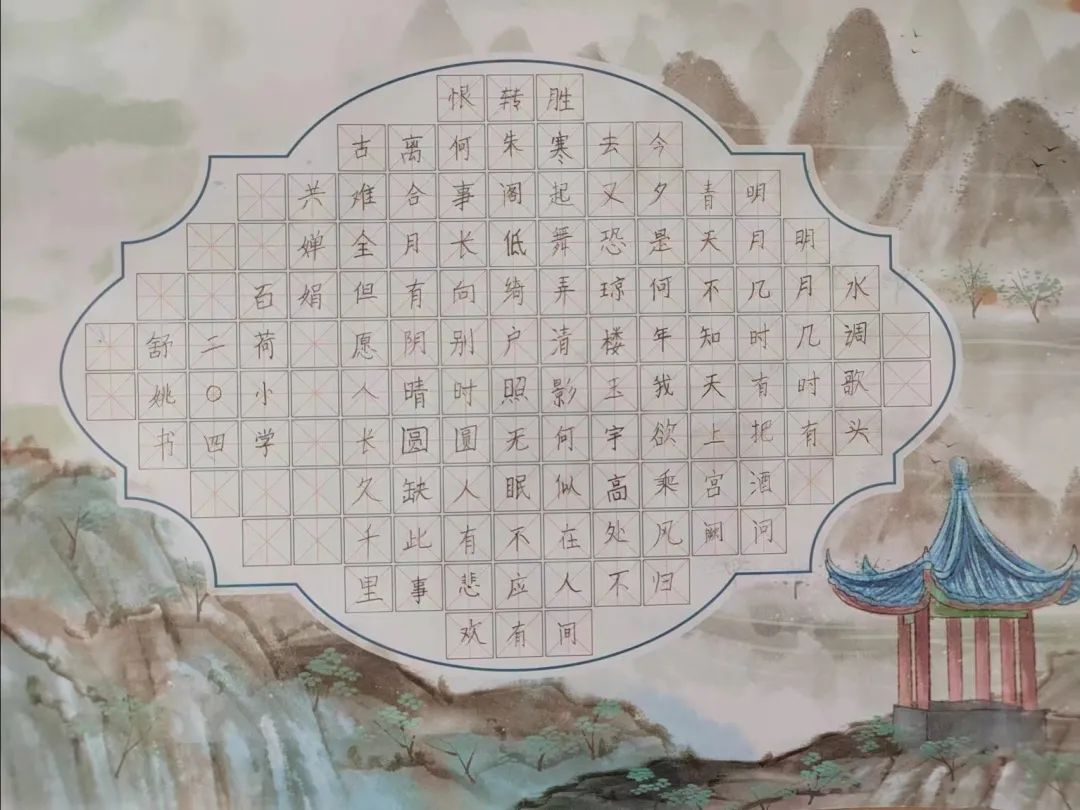 水调歌头
明月几时有
明月几时有把酒问
青天不知天上宫阙
今夕是何年我欲乘风归
去又恐琼楼玉宇高处不
胜寒起舞弄清影何似在人间
转朱阁低绮户照无眠不应有
恨何事长向别时圆人有悲欢
离合月有阴晴圆缺此事
古难全但愿人长久千里
共婵娟
百荷小学
二〇四
舒姚书